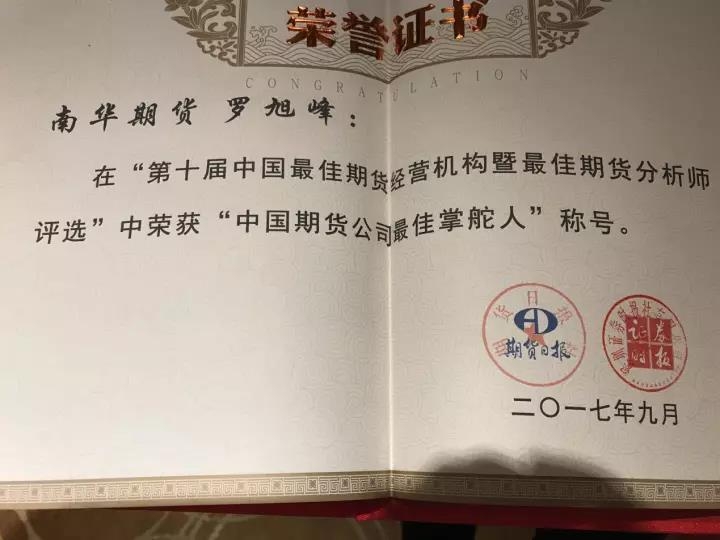 荣誉证书
CONGRATULATION
南华期货 罗旭峰：
在“第十届中国最佳期货经营机构暨最佳期货分析师
评选”中荣获“中国期货公司最佳掌舵人”称号。
期货日报
期货日报
证券时报
二〇一七年九月